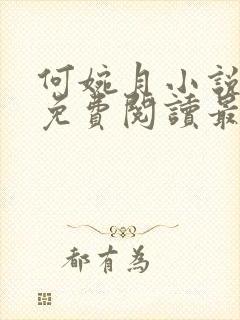 何婉月小說
免費閱讀最
都有為